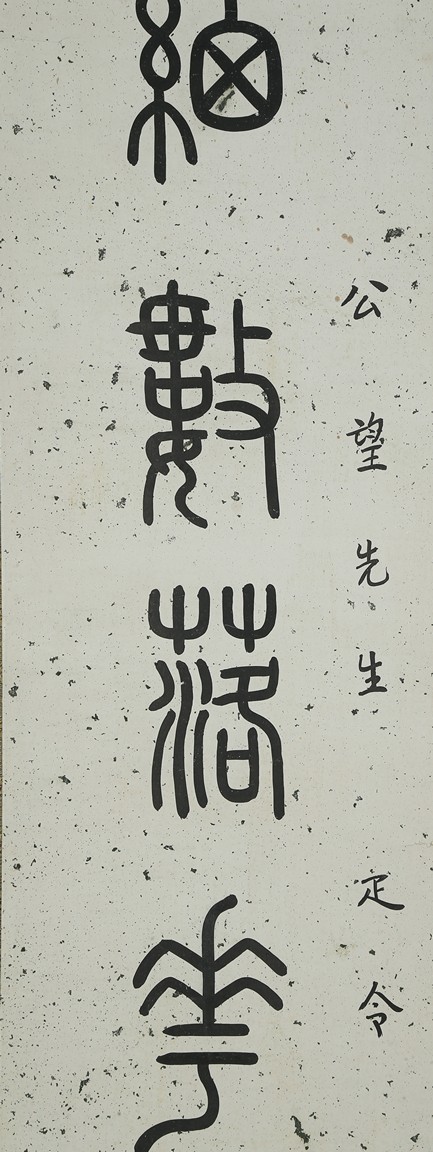 公望先生定令
細數落華